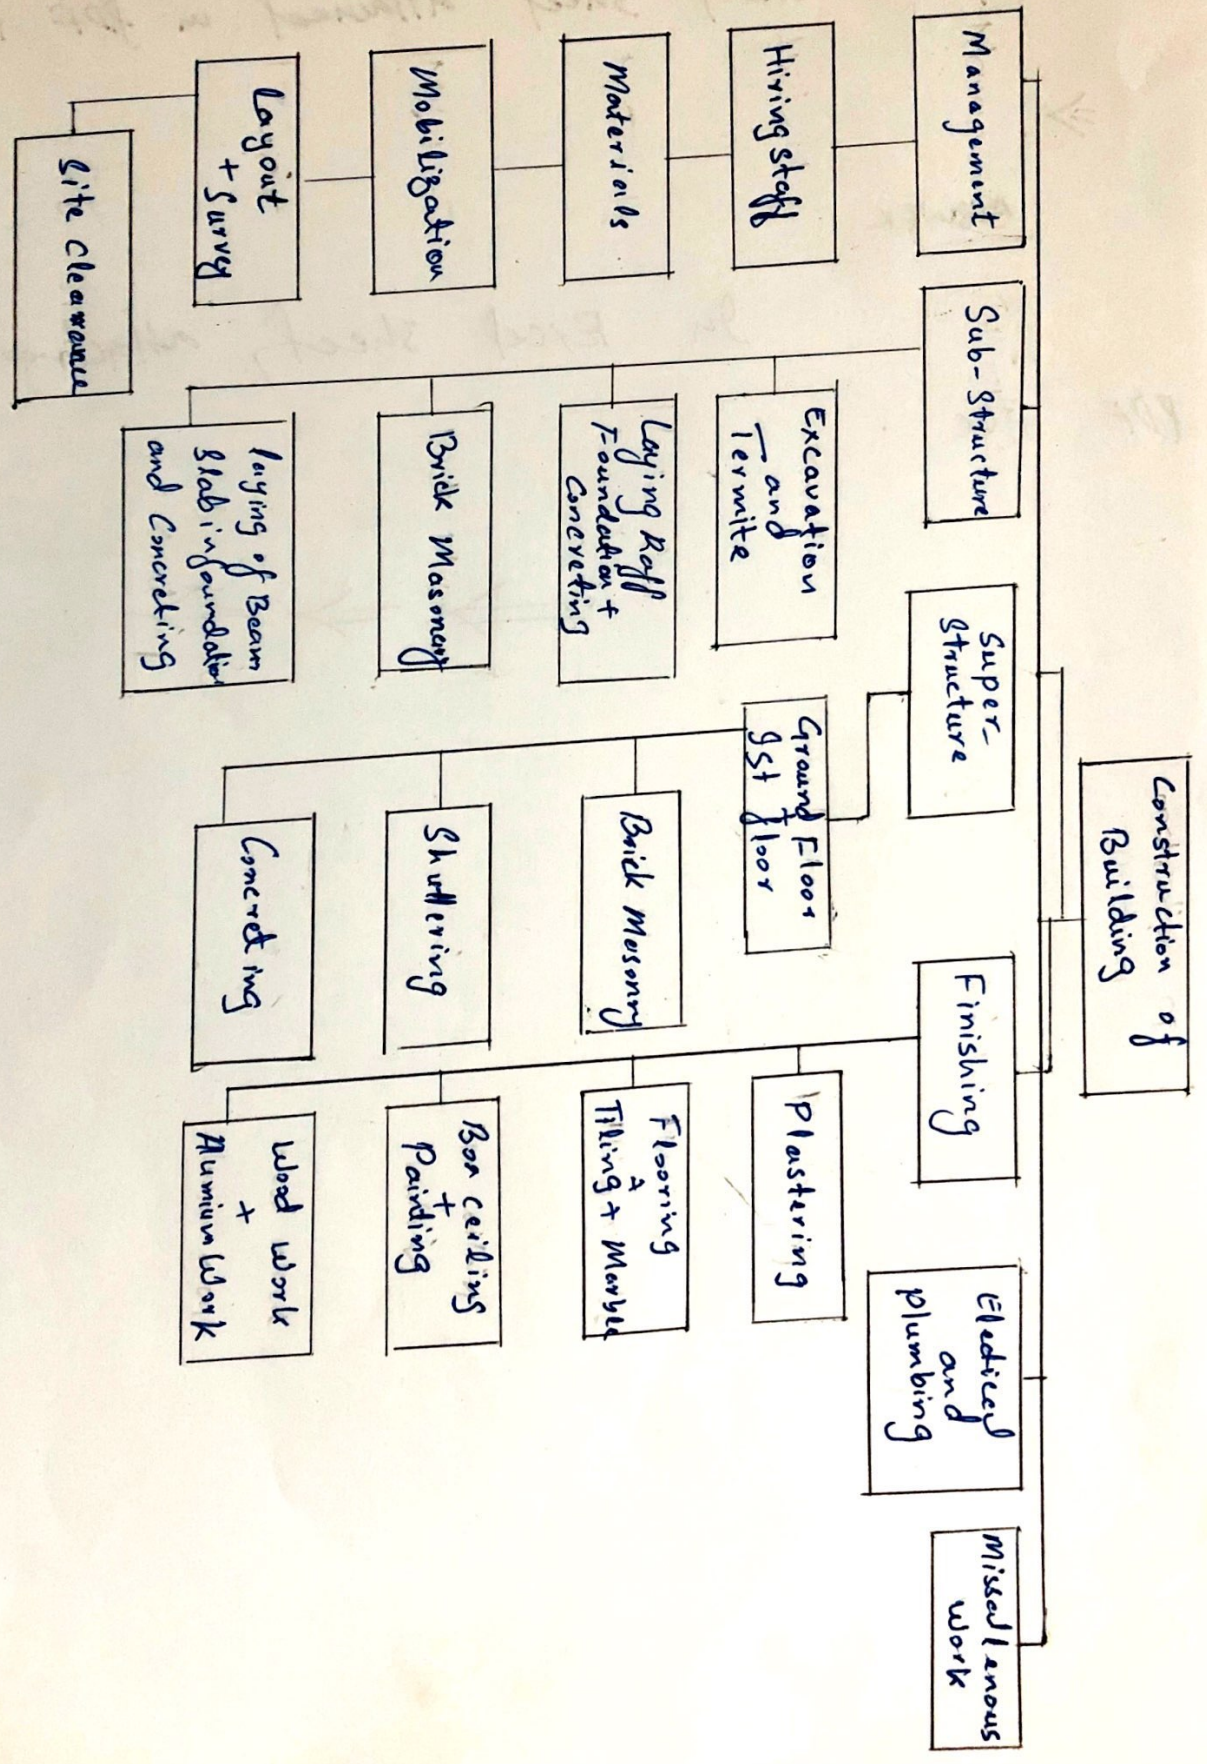 Construction of
Building
Management
Hiring Staff
Materials
Mobilization
Layout
+ Survey
Site Clearance
Sub-Structure
Excavation
and
Termite
Laying Raff
Foundation +
Concreting
Brick Masonery
laying of Beam
Slab in foundation
and Concreting
Super-
Structure
Ground Floor
+
1st floor
Brick Masonry
Shuttering
Concreting
Finishing
Plastering
Flooring
+
Tiling + Marble
Box ceiling
+
Painting
Wood Work
+
Alumium Work
Eledical
and
plumbing
Missallenous
Work
In Excel Sheet,
PDF